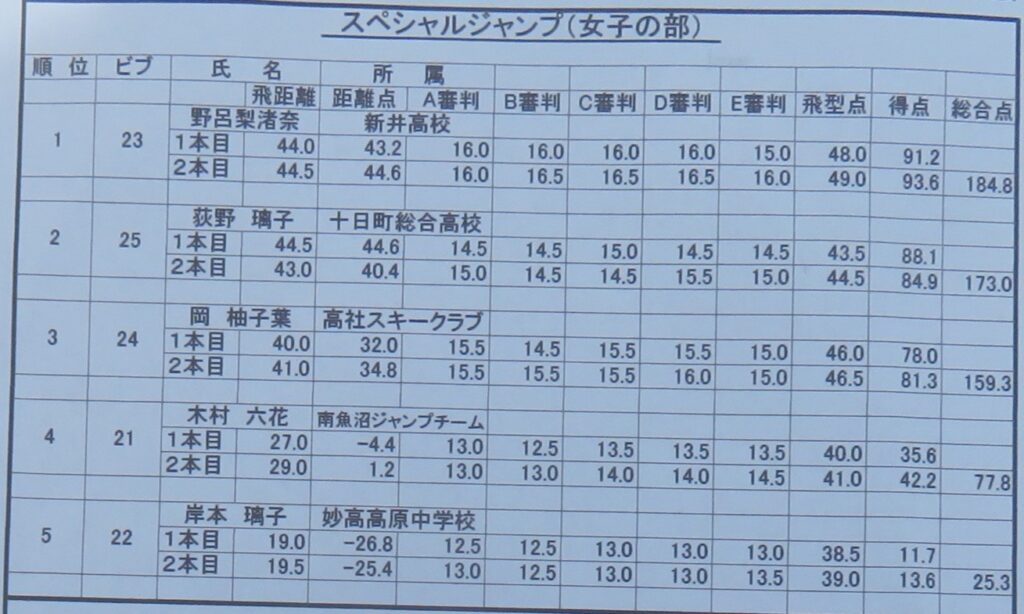 スペシャルジャンプ(女子の部)
順 位 ビブ 氏 名 所 属
飛距離 距離点 A審判 B審判 C審判 D審判 E審判 飛型点 得点 総合点
1 23 野呂梨渚奈 新井高校
1本目 44.0 43.2 16.0 16.0 16.0 16.0 15.0 48.0 91.2
2本目 44.5 44.6 16.0 16.5 16.5 16.5 16.0 49.0 93.6 184.8
2 25 荻野 璃子 十日町総合高校
1本目 44.5 44.6 14.5 14.5 15.0 14.5 14.5 43.5 88.1
2本目 43.0 40.4 15.0 14.5 14.5 15.5 15.0 44.5 84.9 173.0
3 24 岡 柚子葉 高社スキークラブ
1本目 40.0 32.0 15.5 14.5 15.5 15.5 15.0 46.0 78.0
2本目 41.0 34.8 15.5 15.5 15.5 16.0 15.0 46.5 81.3 159.3
4 21 木村 六花 南魚沼ジャンプチーム
1本目 27.0 -4.4 13.0 12.5 13.5 13.5 13.5 40.0 35.6
2本目 29.0 1.2 13.0 13.0 14.0 14.0 14.5 41.0 42.2 77.8
5 22 岸本 璃子 妙高高原中学校
1本目 19.0 -26.8 12.5 12.5 13.0 13.0 13.0 38.5 11.7
2本目 19.5 -25.4 13.0 12.5 13.0 13.0 13.5 39.0 13.6 25.3